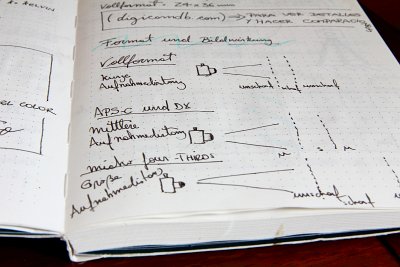 Vollformat: 24 x 36 mm
(digicamdb.com) → PARA VER DETALLES
Y HACER COMPARACIONES
Format und Bildwirkung
Vollformat
kurze
Aufnahmedistanz
unscharf scharf unscharf
APS-C und DX
mittlere
Aufnahmedistanz
u s u
micro FOUR-THIRDS
Große
Aufnahmedistanz
unscharf scharf
EL COLOR